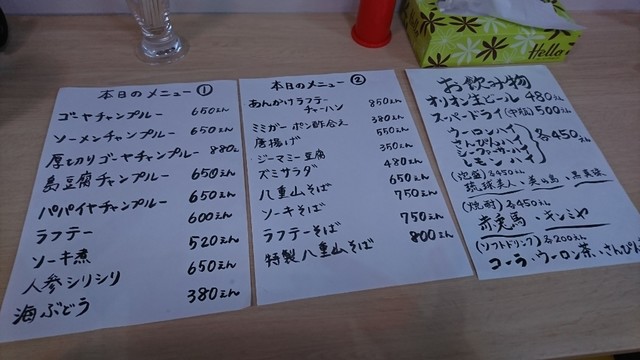 本日のメニュー①
ゴーヤチャンプルー 650えん
ソーメンチャンプルー 650えん
厚切りゴーヤチャンプルー 880え
島豆腐チャンプルー 650えん
パパイヤチャンプルー 650えん
ラフテー 600えん
ソーキ煮 520えん
人参シリシリ 650えん
海ぶどう 380えん
本日のメニュー②
あんかけラフテー
チャーハン 850えん
ミミガーポン酢合え 380えん
唐揚げ 550えん
ジーマミー豆腐 350えん
ズミサラダ 480えん
八重山そば 650えん
ソーキそば 750えん
ラフテーそば 750えん
特製八重山そば 800えん
お飲み物
オリオン生ビール 480えん
スーパードライ(中瓶)500えん
ウーロンハイ
さんぴんハイ
シークヮーサーハイ
レモンハイ
各450えん
(泡盛)各450えん
琉球美人・
(焼酎)各450えん
赤兎馬・キンミヤ
(ソフトドリンク)各200えん
コーラ・ウーロン茶・さんぴん
Hello